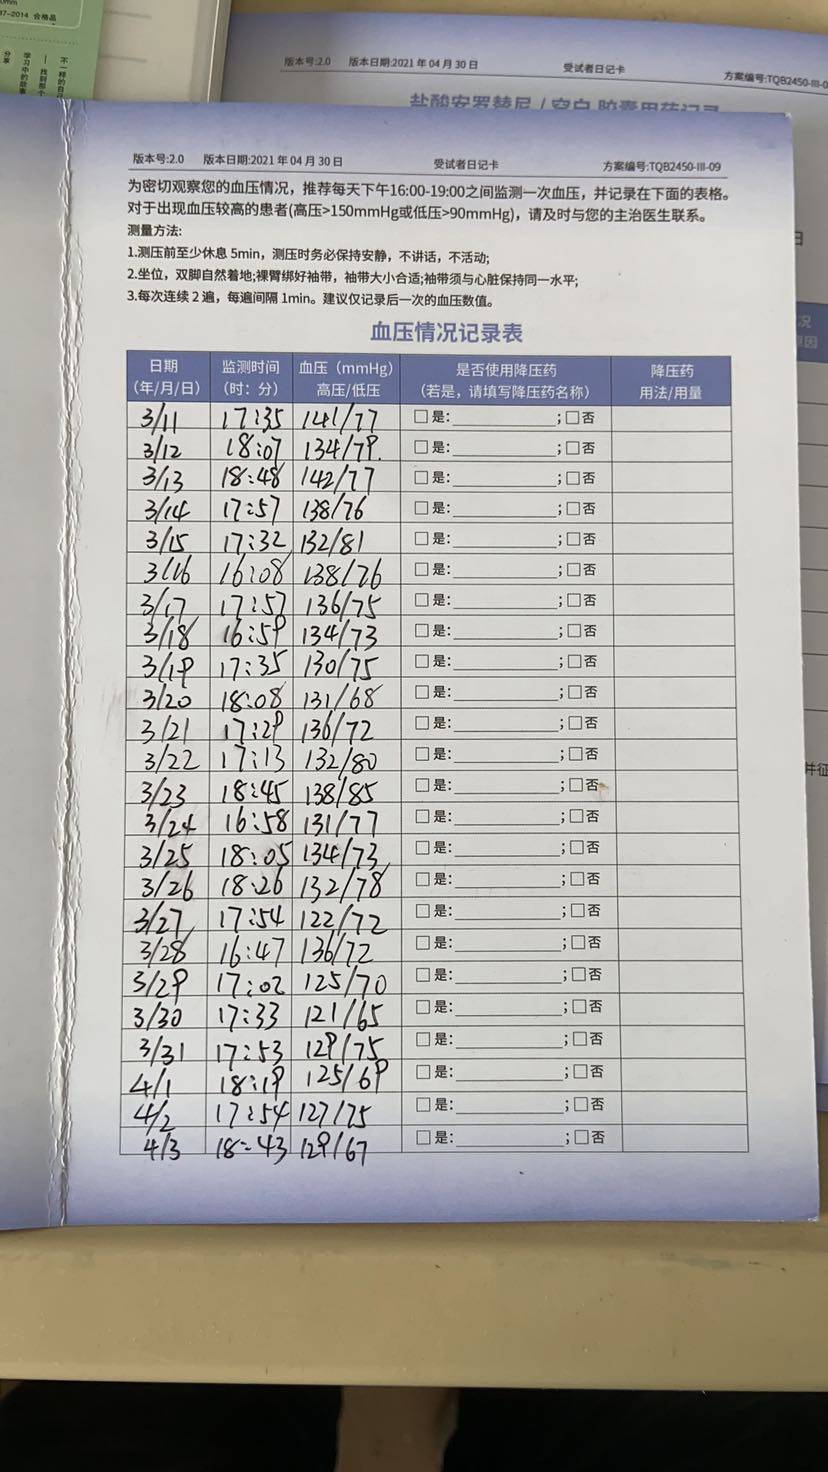 37-2014 合格品
不一样的自己
找到那个
学习中的故事
分享
版本号:2.0 版本日期:2021年04月30日 受试者日记卡 方案编号:TQB2450-III-0
盐酸安罗替尼/空白胶囊用药记录
版本号:2.0 版本日期:2021年04月30日 受试者日记卡 方案编号:TQB2450-III-09
为密切观察您的血压情况，推荐每天下午16:00-19:00之间监测一次血压，并记录在下面的表格。
对于出现血压较高的患者(高压>150mmHg或低压>90mmHg)，请及时与您的主治医生联系。
测量方法:
1.测压前至少休息5min，测压时务必保持安静，不讲话，不活动;
2.坐位，双脚自然着地;裸臂绑好袖带，袖带大小合适;袖带须与心脏保持同一水平;
3.每次连续2遍，每遍间隔1min。建议仅记录后一次的血压数值。
血压情况记录表
日期 监测时间 血压（mmHg） 是否使用降压药 降压药
（年/月/日） （时：分） 高压/低压 （若是，请填写降压药名称） 用法/用量
3/11 17:35 141/77 □是:____;□否
3/12 18:07 134/79. □是:____;□否
3/13 18:48 142/77 □是:____;□否
3/14 17:57 138/76 □是:____;□否
3/15 17:32 132/81 □是:____;□否
3/16 16:08 138/76 □是:____;□否
3/17 17:57 136/75 □是:____;□否
3/18 16:59 134/73 □是:____;□否
3/19 17:35 130/75 □是:____;□否
3/20 18:08 131/68 □是:____;□否
3/21 17:29 136/72 □是:____;□否
3/22 17:13 132/80 □是:____;□否
3/23 18:45 138/85 □是:____;□否
3/24 16:58 131/77 □是:____;□否
3/25 18:05 134/73 □是:____;□否
3/26 18:26 132/78 □是:____;□否
3/27 17:54 122/72 □是:____;□否
3/28 16:47 136/72 □是:____;□否
3/29 17:02 125/70 □是:____;□否
3/30 17:33 121/65 □是:____;□否
3/31 17:53 129/75 □是:____;□否
4/1 18:19 125/69 □是:____;□否
4/2 17:54 127/75 □是:____;□否
4/3 18:43 129/67 □是:____;□否